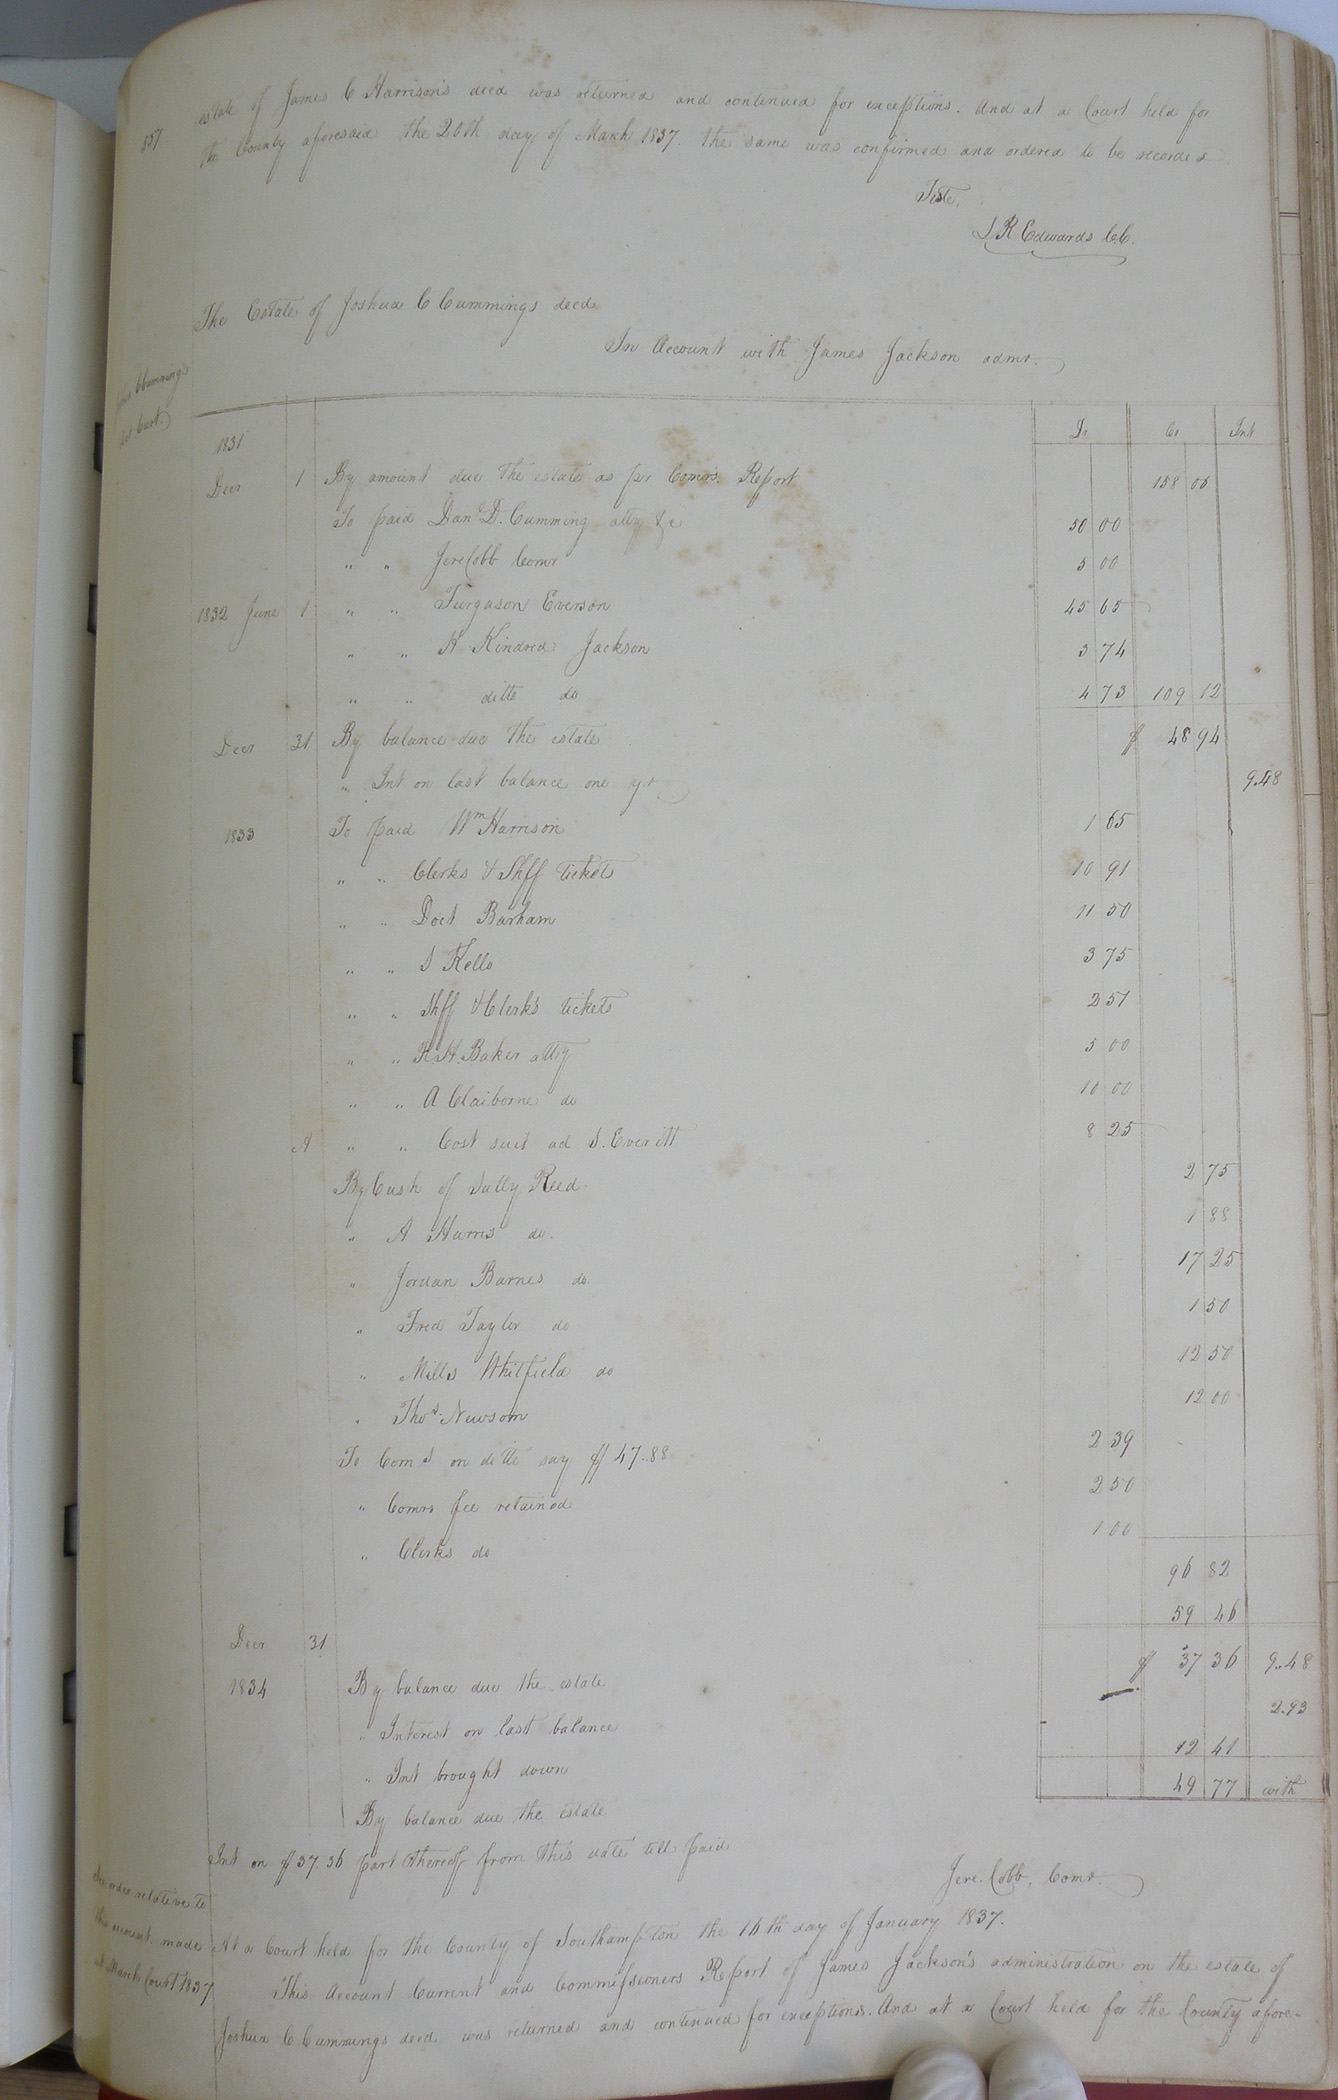 estate of James C Harrison's decd was returned and continued for exceptions. And at a Court held for
the County aforesaid the 20th day of March 1837. the same was confirmed and ordered to be recorded.
Teste,
S R Edwards C.C.
The Estate of Joshua C Cummings decd
In Account with James Jackson admr.
Dr Cr Int
1831
Decr 1 By amount due the estate as pr Comrs. Report 158 06
To paid Dan D. Cumming atty &c 50 00
" " Jere Cobb Comr 5 00
1832 June 1 " " Furguson Everson 45 65
" " K Kindred Jackson 3 74
" " ditto do 4 73 109 12
Decr 31 By balance due the estate $ 48 94
" Int on last balance one yr 9.48
1833 To paid Wm Harrison 1 65
" " Clerks & Shff tickets 10 91
" " Doct Barham 11 50
" " S Kello 3 75
" " Shff & Clerks tickets 2 51
" " R.H. Baker atty 5 00
" " A Claiborne do 10 00
" " Cost suit ad S. Everitt 8 25
By Cash of Sully Reed 2 75
" A Harris do. 1 88
" Jordan Barnes do. 17 25
" Fred Taylor do 1 50
" Mills Whitfield do 12 50
" Thos. Newsom 12 00
To Com 5 on ditto say $ 47..88 2 39
" Comrs fee retained 2 50
" Clerks do 1 00
96 82
59 46
Decr 31 $ 37 36 9..48
1834 By balance due the estate
" Interest on last balance 2.93
" Int brought down 12 41
By balance due the estate 49 77 with
Int on $37.36 part thereof from this date till paid
Jere. Cobb. Comr.
See order relative to
this account made
at March Court 1837
At a Court held for the County of Southampton the 16th day of January 1837.
This Account Current and Commissioners Report of James Jackson's administration on the estate of
Joshua C. Cummings decd was returned and continued for exceptions. And at a Court held for the County afore-